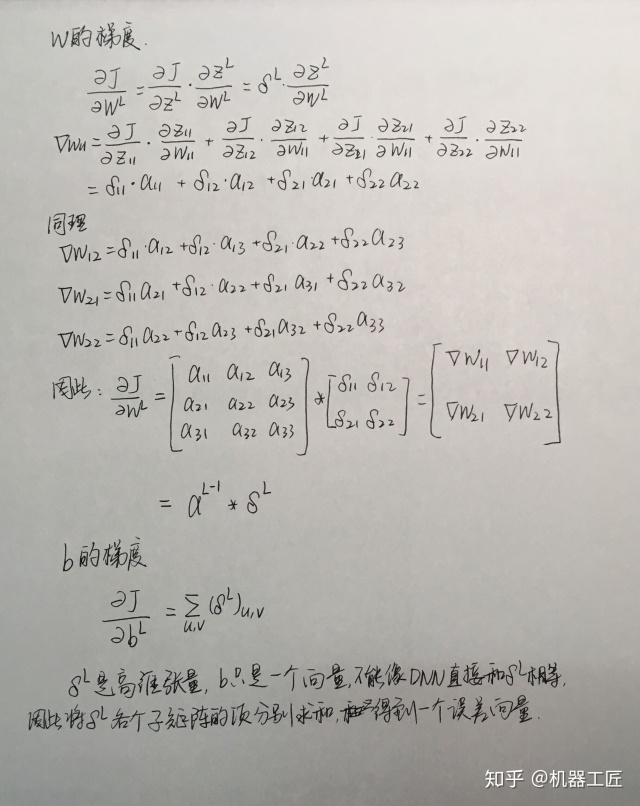 W的梯度.
∂J/∂W^L = ∂J/∂z^L · ∂z^L/∂W^L = δ^L · ∂z^L/∂W^L
∇W11 = ∂J/∂z11 · ∂z11/∂W11 + ∂J/∂z12 · ∂z12/∂W11 + ∂J/∂z21 · ∂z21/∂W11 + ∂J/∂z22 · ∂z22/∂W11
= δ11·a11 + δ12·a12 + δ21·a21 + δ22 a22
同理
∇W12 = δ11·a12 + δ12·a13 + δ21·a22 + δ22 a23
∇W21 = δ11 a21 + δ12·a22 + δ21 a31 + δ22 a32
∇W22 = δ11 a22 + δ12 a23 + δ21 a32 + δ22 a33
因此: ∂J/∂W^L = [a11 a12 a13; a21 a22 a23; a31 a32 a33] * [δ11 δ12; δ21 δ22] = [∇W11 ∇W12; ∇W21 ∇W22]
= a^(L-1) * δ^L
b的梯度
∂J/∂b^L = Σ_{u,v} (δ^L)_{u,v}
δ^L是高维张量, b只是一个向量, 不能像DNN直接和δ^L相等,
因此将δ^L各个子矩阵的项分别求和, 得到一个误差向量.
知乎 @机器工匠